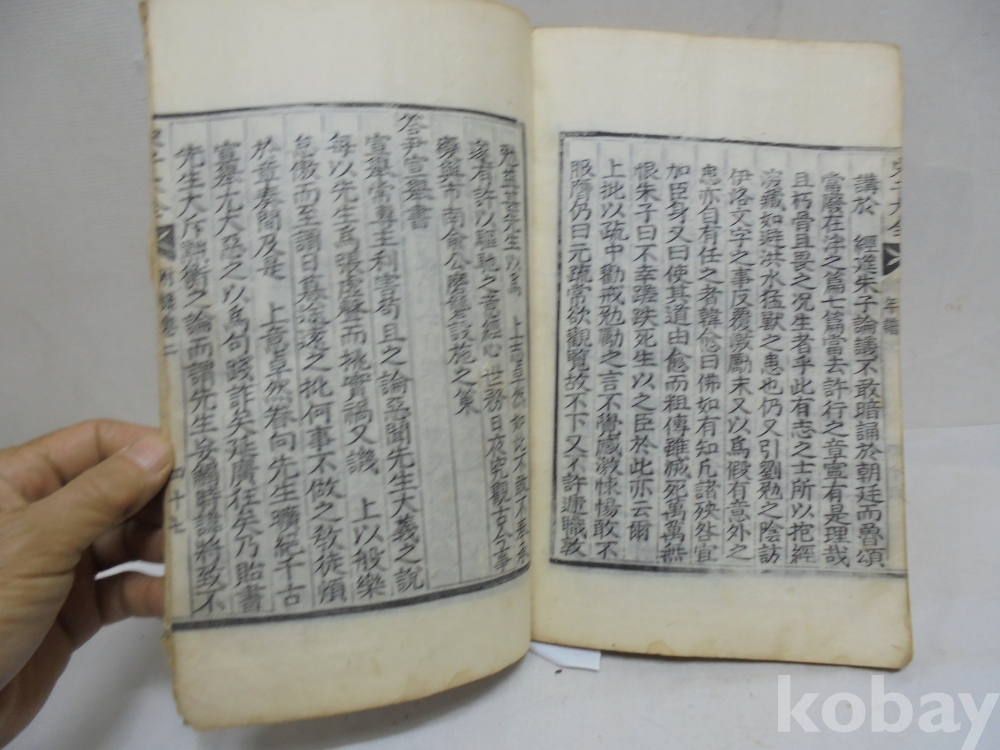 講於 經筵朱子論議不敢暗誦於朝廷而魯頌
當廢在泮之篇七篇當去許行之章寧有是理哉
且朽骨且畏之况生者乎此有志之士所以抱經
深藏如避洪水猛獸之患也仍又引劉勉之陰訪
伊洛文字之事反覆激勵末又以爲假有意外之
患亦自有任之者韓愈曰佛如有知凡諸殃咎宜
加臣身又曰使其道由愈而粗傳雖滅死萬萬無
恨朱子曰不幸蹉跌死生以之臣於此亦云爾
上批以疏中勸戒勉勵之言不覺感激悚惕敢不
服膺仍曰元疏常欲觀覽故不下又不許遞職敦
先生以爲 上
寢有許以驅馳之意經心世務日夜究觀古今事
變與市南兪公磨礱設施之策
答尹宣擧書
宣擧常專主利害苟且之論惡聞先生大義之說
每以先生爲張虛殼而挑實禍又譏 上以般樂
怠傲而至謂日暮途遠之批何事不做之敎徒煩
於章奏間及是 上意卓然眷向先生曠絶千古
宣擧尤大惡之以爲句踐詐矣延廣狂矣乃貽書
先生大斥點術之論而謂先生妄觸時諱將致不
年譜
四十七
kobay